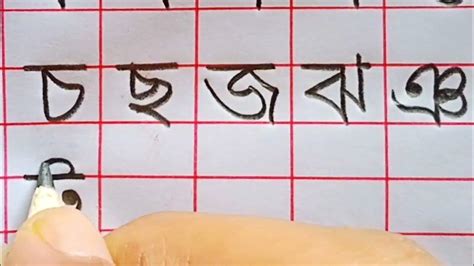 চ ছ জ ঝ ঞ
ট